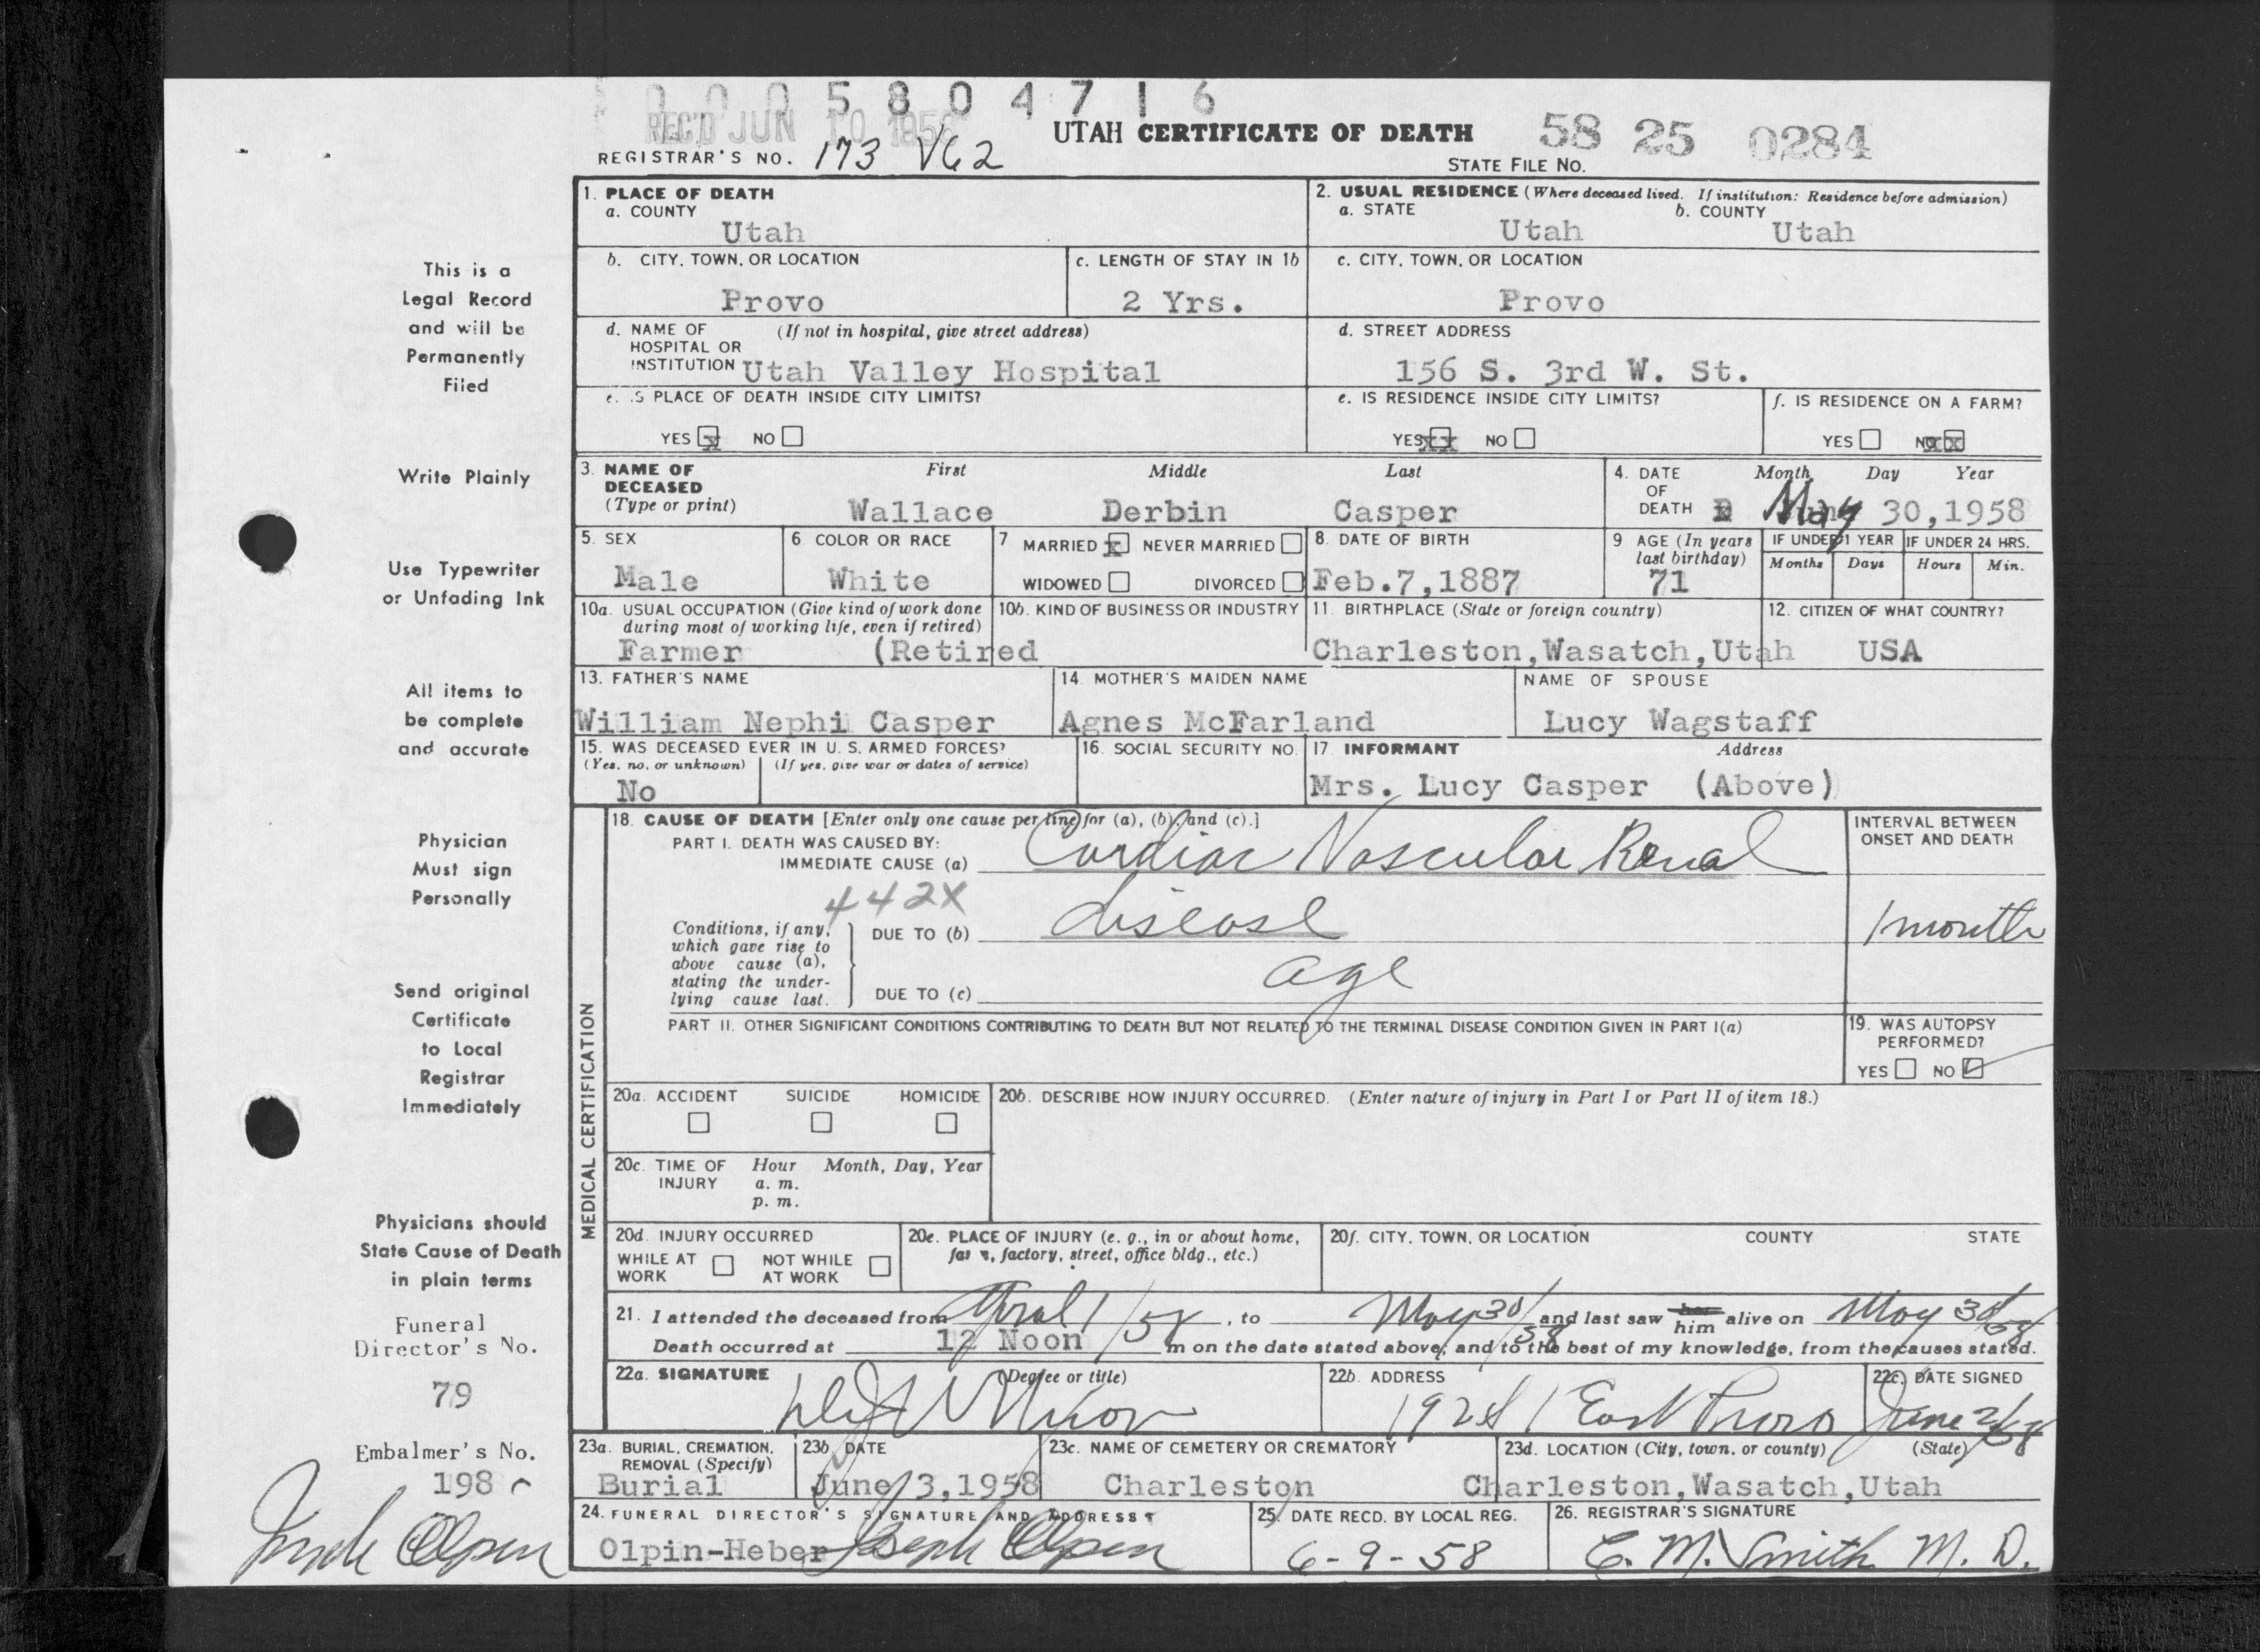 0 0 0 5 8 0 4 7 1 6
REC'D JUN 10 1958
UTAH CERTIFICATE OF DEATH
58 25 0284
REGISTRAR'S NO. 173 V62
STATE FILE NO.
1. PLACE OF DEATH
a. COUNTY
Utah
2. USUAL RESIDENCE (Where deceased lived. If institution: Residence before admission)
a. STATE b. COUNTY
Utah Utah
b. CITY, TOWN, OR LOCATION
Provo
c. LENGTH OF STAY IN 1b
2 Yrs.
c. CITY, TOWN, OR LOCATION
Provo
d. NAME OF (If not in hospital, give street address)
HOSPITAL OR
INSTITUTION Utah Valley Hospital
d. STREET ADDRESS
156 S. 3rd W. St.
e. IS PLACE OF DEATH INSIDE CITY LIMITS?
YES x NO
e. IS RESIDENCE INSIDE CITY LIMITS?
YES xx NO
f. IS RESIDENCE ON A FARM?
YES NO xx
3. NAME OF First Middle Last
DECEASED
(Type or print) Wallace Derbin Casper
4. DATE Month Day Year
OF
DEATH May 30,1958
5. SEX
Male
6 COLOR OR RACE
White
7 MARRIED x NEVER MARRIED
WIDOWED DIVORCED
8. DATE OF BIRTH
Feb.7,1887
9 AGE (In years
last birthday)
71
IF UNDER 1 YEAR
Months Days
IF UNDER 24 HRS.
Hours Min.
10a. USUAL OCCUPATION (Give kind of work done
during most of working life, even if retired)
Farmer (Retired
10b. KIND OF BUSINESS OR INDUSTRY
11. BIRTHPLACE (State or foreign country)
Charleston,Wasatch,Utah
12. CITIZEN OF WHAT COUNTRY?
USA
13. FATHER'S NAME
William Nephi Casper
14. MOTHER'S MAIDEN NAME
Agnes McFarland
NAME OF SPOUSE
Lucy Wagstaff
15. WAS DECEASED EVER IN U. S. ARMED FORCES?
(Yes, no, or unknown) (If yes, give war or dates of service)
No
16. SOCIAL SECURITY NO.
17. INFORMANT Address
Mrs. Lucy Casper (Above)
MEDICAL CERTIFICATION
18. CAUSE OF DEATH [Enter only one cause per line for (a), (b), and (c).]
PART I. DEATH WAS CAUSED BY:
IMMEDIATE CAUSE (a) Cardiac Vascular Renal
442X
Conditions, if any,
which gave rise to
above cause (a),
stating the under-
lying cause last.
DUE TO (b) disease
DUE TO (c) age
INTERVAL BETWEEN
ONSET AND DEATH
1 month
PART II. OTHER SIGNIFICANT CONDITIONS CONTRIBUTING TO DEATH BUT NOT RELATED TO THE TERMINAL DISEASE CONDITION GIVEN IN PART I(a)
19. WAS AUTOPSY
PERFORMED?
YES NO
20a. ACCIDENT SUICIDE HOMICIDE
20b. DESCRIBE HOW INJURY OCCURRED. (Enter nature of injury in Part I or Part II of item 18.)
20c. TIME OF Hour Month, Day, Year
INJURY a. m.
p. m.
20d. INJURY OCCURRED
WHILE AT NOT WHILE
WORK AT WORK
20e. PLACE OF INJURY (e. g., in or about home,
farm, factory, street, office bldg., etc.)
20f. CITY, TOWN, OR LOCATION COUNTY STATE
21. I attended the deceased from April 1/58, to May 30/58 and last saw her him alive on May 30/58
Death occurred at 12 Noon m on the date stated above, and to the best of my knowledge, from the causes stated.
22a. SIGNATURE (Degree or title)
22b. ADDRESS
192 S 1 East Provo
22c. DATE SIGNED
June 2/58
23a. BURIAL, CREMATION,
REMOVAL (Specify)
Burial
23b. DATE
June 3,1958
23c. NAME OF CEMETERY OR CREMATORY
Charleston
23d. LOCATION (City, town, or county) (State)
Charleston,Wasatch,Utah
24. FUNERAL DIRECTOR'S SIGNATURE AND ADDRESS
Olpin-Heber Joseph Olpin
25. DATE RECD. BY LOCAL REG.
6-9-58
26. REGISTRAR'S SIGNATURE
C. M. Smith M. D.
This is a
Legal Record
and will be
Permanently
Filed
Write Plainly
Use Typewriter
or Unfading Ink
All items to
be complete
and accurate
Physician
Must sign
Personally
Send original
Certificate
to Local
Registrar
Immediately
Physicians should
State Cause of Death
in plain terms
Funeral
Director's No.
79
Embalmer's No.
198
Olpin